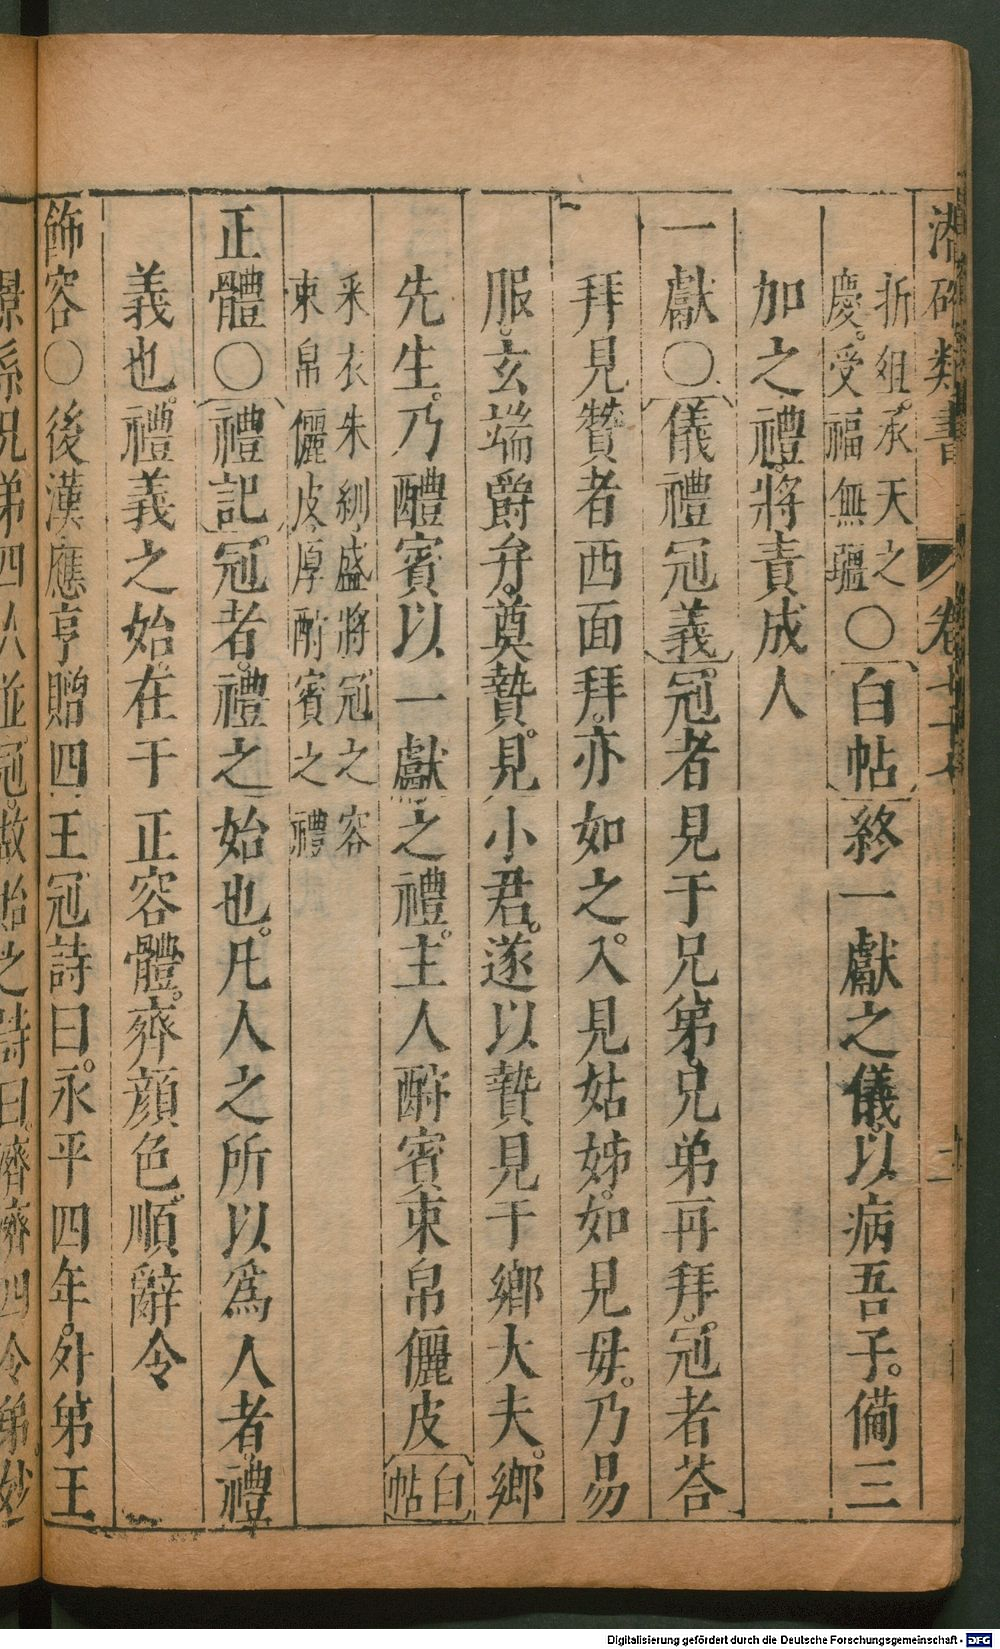 潛確類書 卷七十
折俎。承天之
慶。受福無疆
〇白帖終一獻之儀以病吾子。備三
加之禮。將責成人
一獻〇儀禮冠義冠者見于兄弟兄弟再拜。冠者荅
拜見贊者西面拜。亦如之。入見姑姊。如見母。乃易
服。玄端爵弁。奠贄。見小君。遂以贄見于鄉大夫。鄉
先生。乃醴賓以一獻之禮。主人酧賓束帛儷皮白帖
釆衣朱紖盛將冠之容
束帛儷皮厚酧賓之禮
正體〇禮記冠者。禮之始也。凡人之所以爲人者。禮
義也。禮義之始。在于正容體。齊顏色。順辭令
飾容〇後漢應亨贈四王冠詩曰。永平四年。外弟王
景系兄弟四人並冠。故貽之詩曰。濟濟四令弟妙
Digitalisierung gefördert durch die Deutsche Forschungsgemeinschaft - DFG